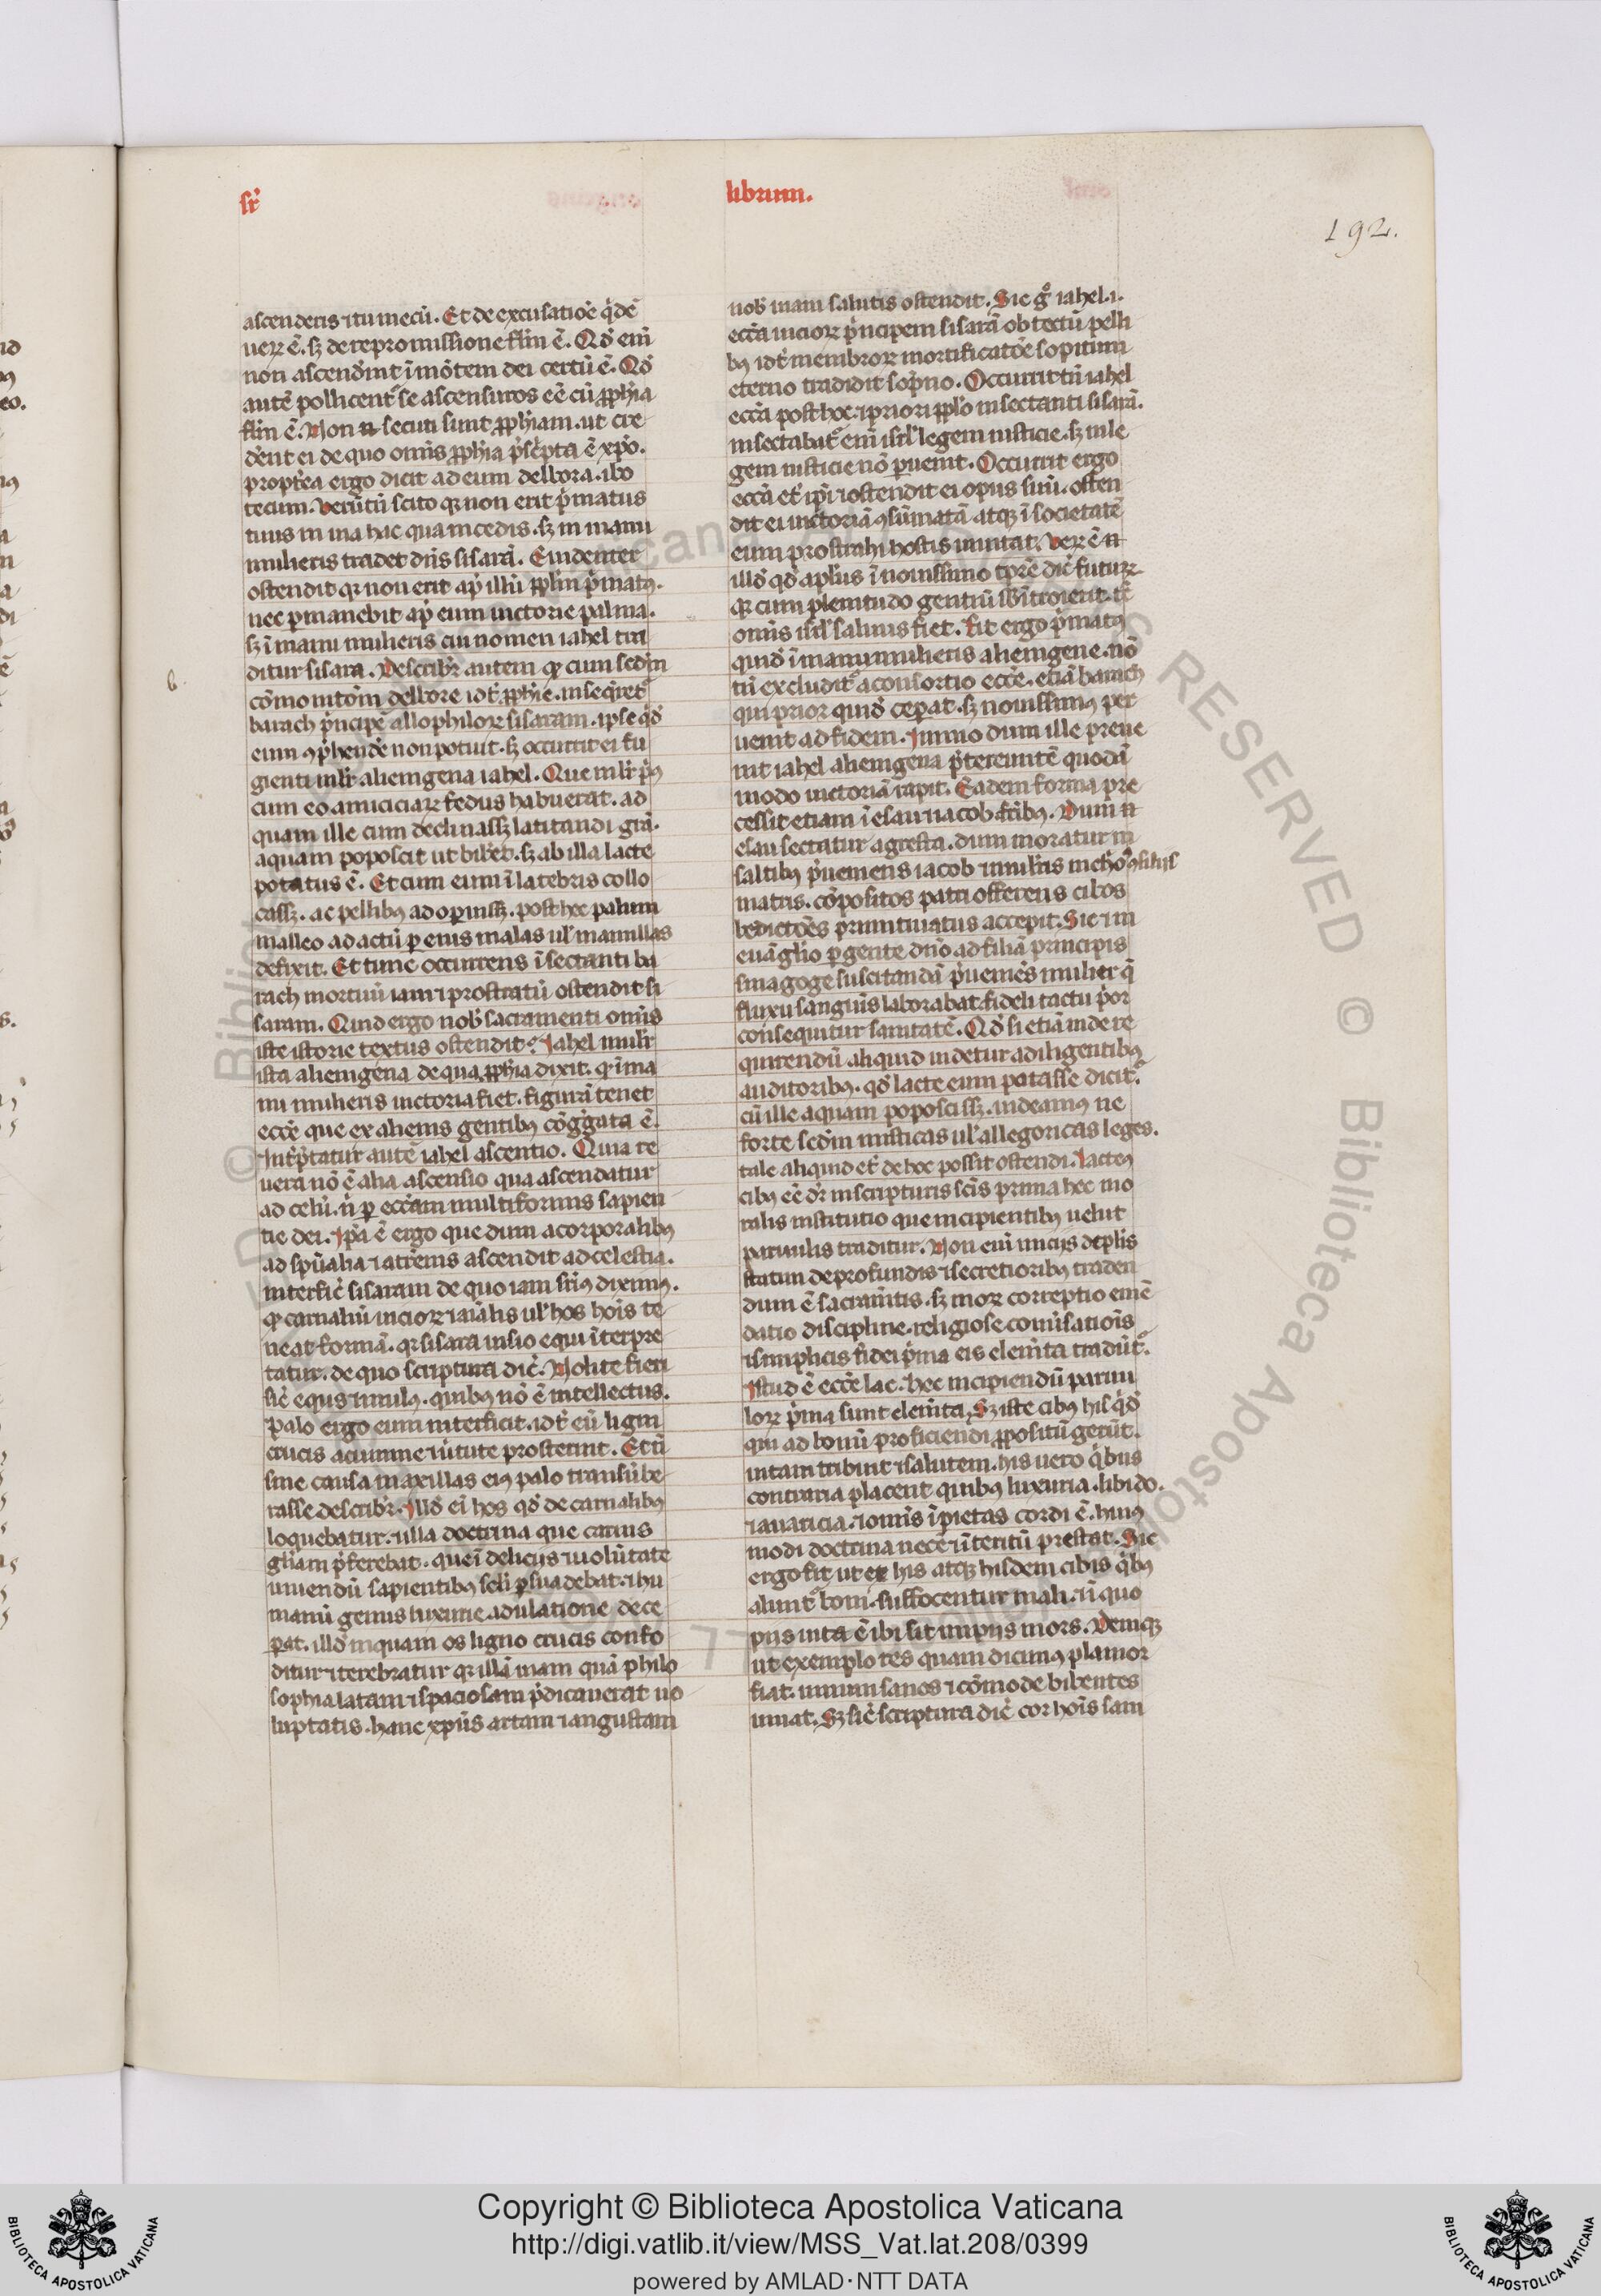 sr̄
librum.
192.
ascenderis ⁊ tu mecū. Et de excusatiōe q̇dē
ueꝝ ē. sꝫ de repromissione flm̄ ē. Qđ eni̅
non ascenderint i̅ mōtem dei certū ē. Qđ
autē pollicent̉ se ascensuros eē cū ꝓph̄ia
flm̄ ē. Non n̄ secuti sunt ꝓph̄iam. ut cre
derēt ei de quo omīs ꝓph̄ia p̄sc̄pta ē xp̄o.
propt̉ea ergo dicit ad eum delbora. ibo
tecum. Verūtū scito qꝛ non erit p̄matus
tuus in uia hac qua incedis. sꝫ in manu
mulieris tradet dn̄s sisarā. Euidenter
ostendit qꝛ non erit ap̄ illū ppl̄m p̄matꝰ.
nec p̱manebit ap̄ eum uictorie palma.
sꝫ i̅ manu mulieris cui nomen iahel tra
ditur sisara. Describit̉ autem qꝙ cum scd̄m
cōmonitōm̄ delbore idt̉ ꝓph̄ie. inseq̇ret̉
barach p̄ncipē allophiloꝝ sisaram. ipse q̇dē
eum ꝯp̄hendē non potuit. sꝫ occurrit ei fu
gienti ml̄r alienigena iahel. Que ml̄r p̄ꝰ
cum eo amiciciaꝝ fedus habuerat. ad
quam ille cum declinassꝫ latitandi grā.
aquam poposcit ut biberet. sꝫ ab illa lacte
potatus ē. Et cum eum i̅ latebris collo
cassꝫ. ac pellibꝰ adop̱uissꝫ. post hec palum
malleo adactū p̱ eius malas ul̉ maxillas
defixit. Et tunc occurrens i̅sectanti ba
rach mortuū iam ⁊ prostratū ostendit si
saram. Quid ergo nob̄ sacramenti omīs
iste istorie textus ostendit? Iahel mul̉r
ista alienigena de qua ꝓph̄ia dixit. qꝛ i̅ ma
nu mulieris uictoria fiet. figurā tenet
ecc̄e que ex alienis gentibꝰ cōgg̉ata ē.
Int̉p̄tatur autē iahel ascentio. Quia re
uera nō ē alia ascensio qua ascendatur
ad celū. n̄ p̱ ecc̄am multiformis sapien
tie dei. Ip̄a ē ergo que dum a corporalibꝰ
ad spūalia ⁊ a tr̄enis ascendit ad celestia.
interfic̄ sisaram de quo iam sr̄iꝰ diximꝰ.
qꝙ carnaliū uicioꝝ ⁊ aīalis ul̉ hos hoīs te
neat formā. qꝛ sisara uisio equi i̅terpre
tatur. de quo scriptura dic̄. Nolite fieri
sic̄ equs ⁊ mulꝰ. quibꝰ nō ē intellectus.
Palo ergo eum interficit. idt̉ eū ligni
crucis acumine ⁊ ūtute prosternit. Et n̄
sine causa maxillas eiꝰ palo transūbe
rasse describit̉. Illđ ei̅ hos qđ de carnalibꝰ
loquebatur. ⁊ illa doctrina que carnis
gl̄iam p̄ferebat. que i̅ deliciis ⁊ uolūtate
uiuendū sapientibꝰ scl̄i p̱suadebat. ⁊ hu
manū genus luxurie adulatione dece
p̱at. illđ inquam os ligno crucis confo
ditur ⁊ terebratur qꝛ illā uiam quā philo
sophia latam ⁊ spaciosam p̄dicauerat uo
luptatis. hanc xp̄us artam ⁊ angustam
nob̄ uiam salutis ostendit. Sic gͦ iahel .i.
ecc̄a uicioꝝ p̄ncipem sisarā obtectū pelli
bꝰ idt̉ membroꝝ mortificatōe sopitum
eterno tradidit sop̱no. Occurrit tn̄ iahel
ecc̄a post hoc. ⁊ priori ppl̄o insectanti sisarā.
insectabat̉ eni̅ isrl̄ legem iusticie. sꝫ in le
gem iusticie nō p̱uenit. Occurrit ergo
ecc̄a et̉ ip̄i ⁊ ostendit ei opus suū. osten
dit ei uictoriā ꝯsūmatā atqꝫ i̅ societatē
eum prostrati hostis inuitat. Veꝝ ē n̄
illđ qđ apl̄us i̅ nouissimo tp̄re dic̄ futuꝝ
qꝛ cum plenitudo gentiū sb̄i̅troierit. tc̄
omīs isrl̄ saluus fiet. Fit ergo p̄matꝰ
quidē i̅ manu mulieris alienigene. nō
tn̄ excludit̉ a consortio ecc̄e. etiā barach
qui prior quidē cep̱at. sꝫ nouissimꝰ per
uenit ad fidem. Immo dum ille preue
nit iahel alienigena p̄tereuntē quodā
modo uictoriā rapit. Eadem forma pre
cessit etiam i̅ esau ⁊ iacob fr̄ibꝰ. Dum n̄
esau sectatur agrestia. dum moratur in
saltibꝰ p̄ueniens iacob ⁊ mulieris ꝯsiliis
matris. cōpositos patri offerens cibos
bn̄edictōes primitiuatus accepit. Sic ⁊ in
euāgl̄io p̱gente dn̄o ad filiā principis
sinagoge suscitandā p̄ueniēs mulier q̄
fluxu sanguis laborabat. fideli tactu p̄or
consequitur sanitatē. Qđ si etiā inde re
quirendū aliquid uidetur a diligentibꝰ
auditoribꝰ. qđ lacte eum potasse dicit̉
cū ille aquam poposcissꝫ. uideamꝰ ne
forte scd̄m misticas ul̉ allegoricas leges.
tale aliquid et̉ de hoc possit ostendi. Lacteꝰ
cibꝰ eē dr̄ in scripturis scīs prima hec mo
ralis institutio que incipientibꝰ uelut
paruulis traditur. Non eni̅ iniciis discipl̄is
statim de profundis ⁊ secretioribꝰ traden
dum ē sacram̄tis. sꝫ moꝝ correptio emē
datio discipline. religiose conuersatiois
⁊ simplicis fidei p̄ma eis elem̄ta tradūt̉.
Istud ē ecc̄e lac. hec incipiendū paruu
loꝝ p̄ma sunt elem̄ta. Sꝫ iste cibꝰ his q̇dē
qui ad bonū proficiendi ꝓpositū gerūt.
uitam tribuit ⁊ salutem. his uero q̇bus
contraria placent quibus luxuria. libido.
⁊ auaricia. ⁊ omīs i̅pietas cordi ē. huiꝰ
modi doctrina necē ⁊ i̅teritū prestat. Sic
ergo fit ut ex his atqꝫ hisdem cibis q̇bꝰ
alunt̉ boni. suffocentur mali. ⁊ i̅ quo
piis uita ē ibi sit impiis mors. Deniqꝫ
ut exemplo res quam dicimꝰ planior
fiat. uinum sanos ⁊ cōmode bibentes
iuuat. Sꝫ sic̄ scriptura dic̄ cor hoīs lam
Copyright © Biblioteca Apostolica Vaticana
http://digi.vatlib.it/view/MSS_Vat.lat.208/0399
powered by AMLAD·NTT DATA
BIBLIOTECA APOSTOLICA VATICANA
BIBLIOTECA APOSTOLICA VATICANA